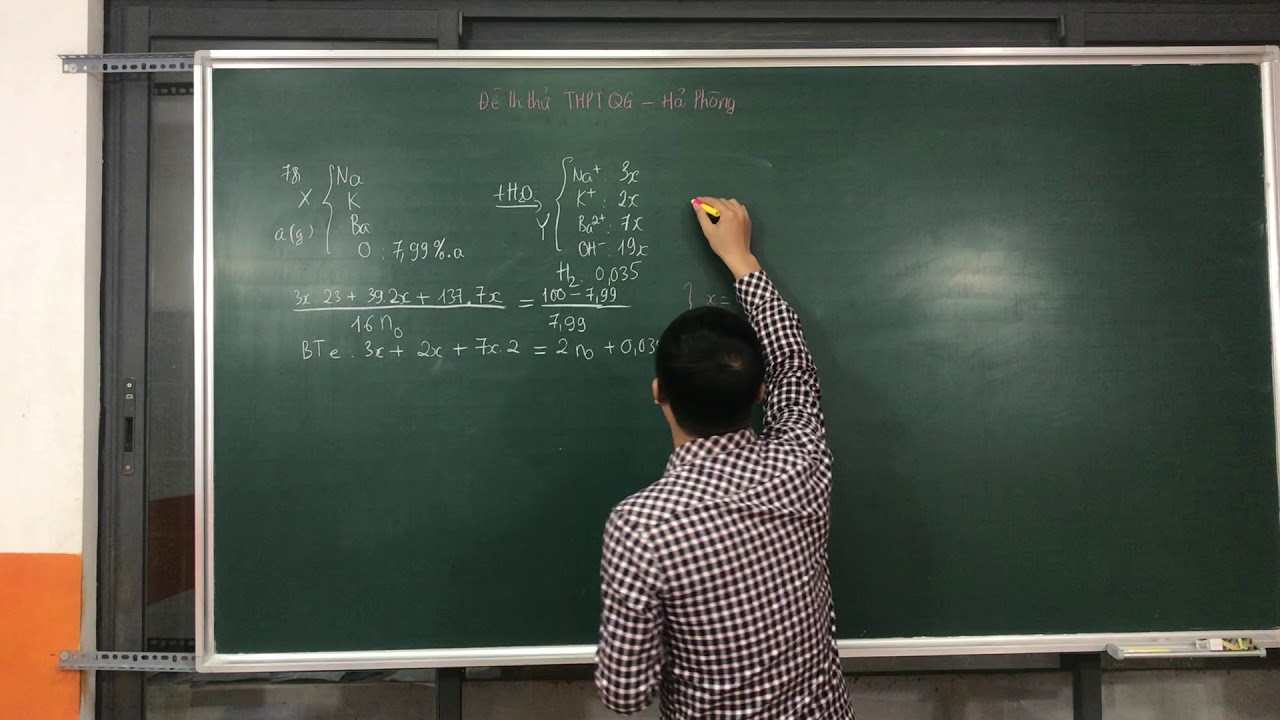 Đề th thử THPT QG – Hải Phòng
78
X
a(g)
Na
K
Ba
O : 7,99%.a
+H₂O
Y
Na⁺ : 3x
K⁺ : 2x
Ba²⁺ : 7x
OH⁻ : 19x
H₂ : 0,035
3x.23 + 39.2x + 137.7x = 100 – 7,99
16 n₀ 7,99
x =
BTe : 3x + 2x + 7x.2 = 2n₀ + 0,03